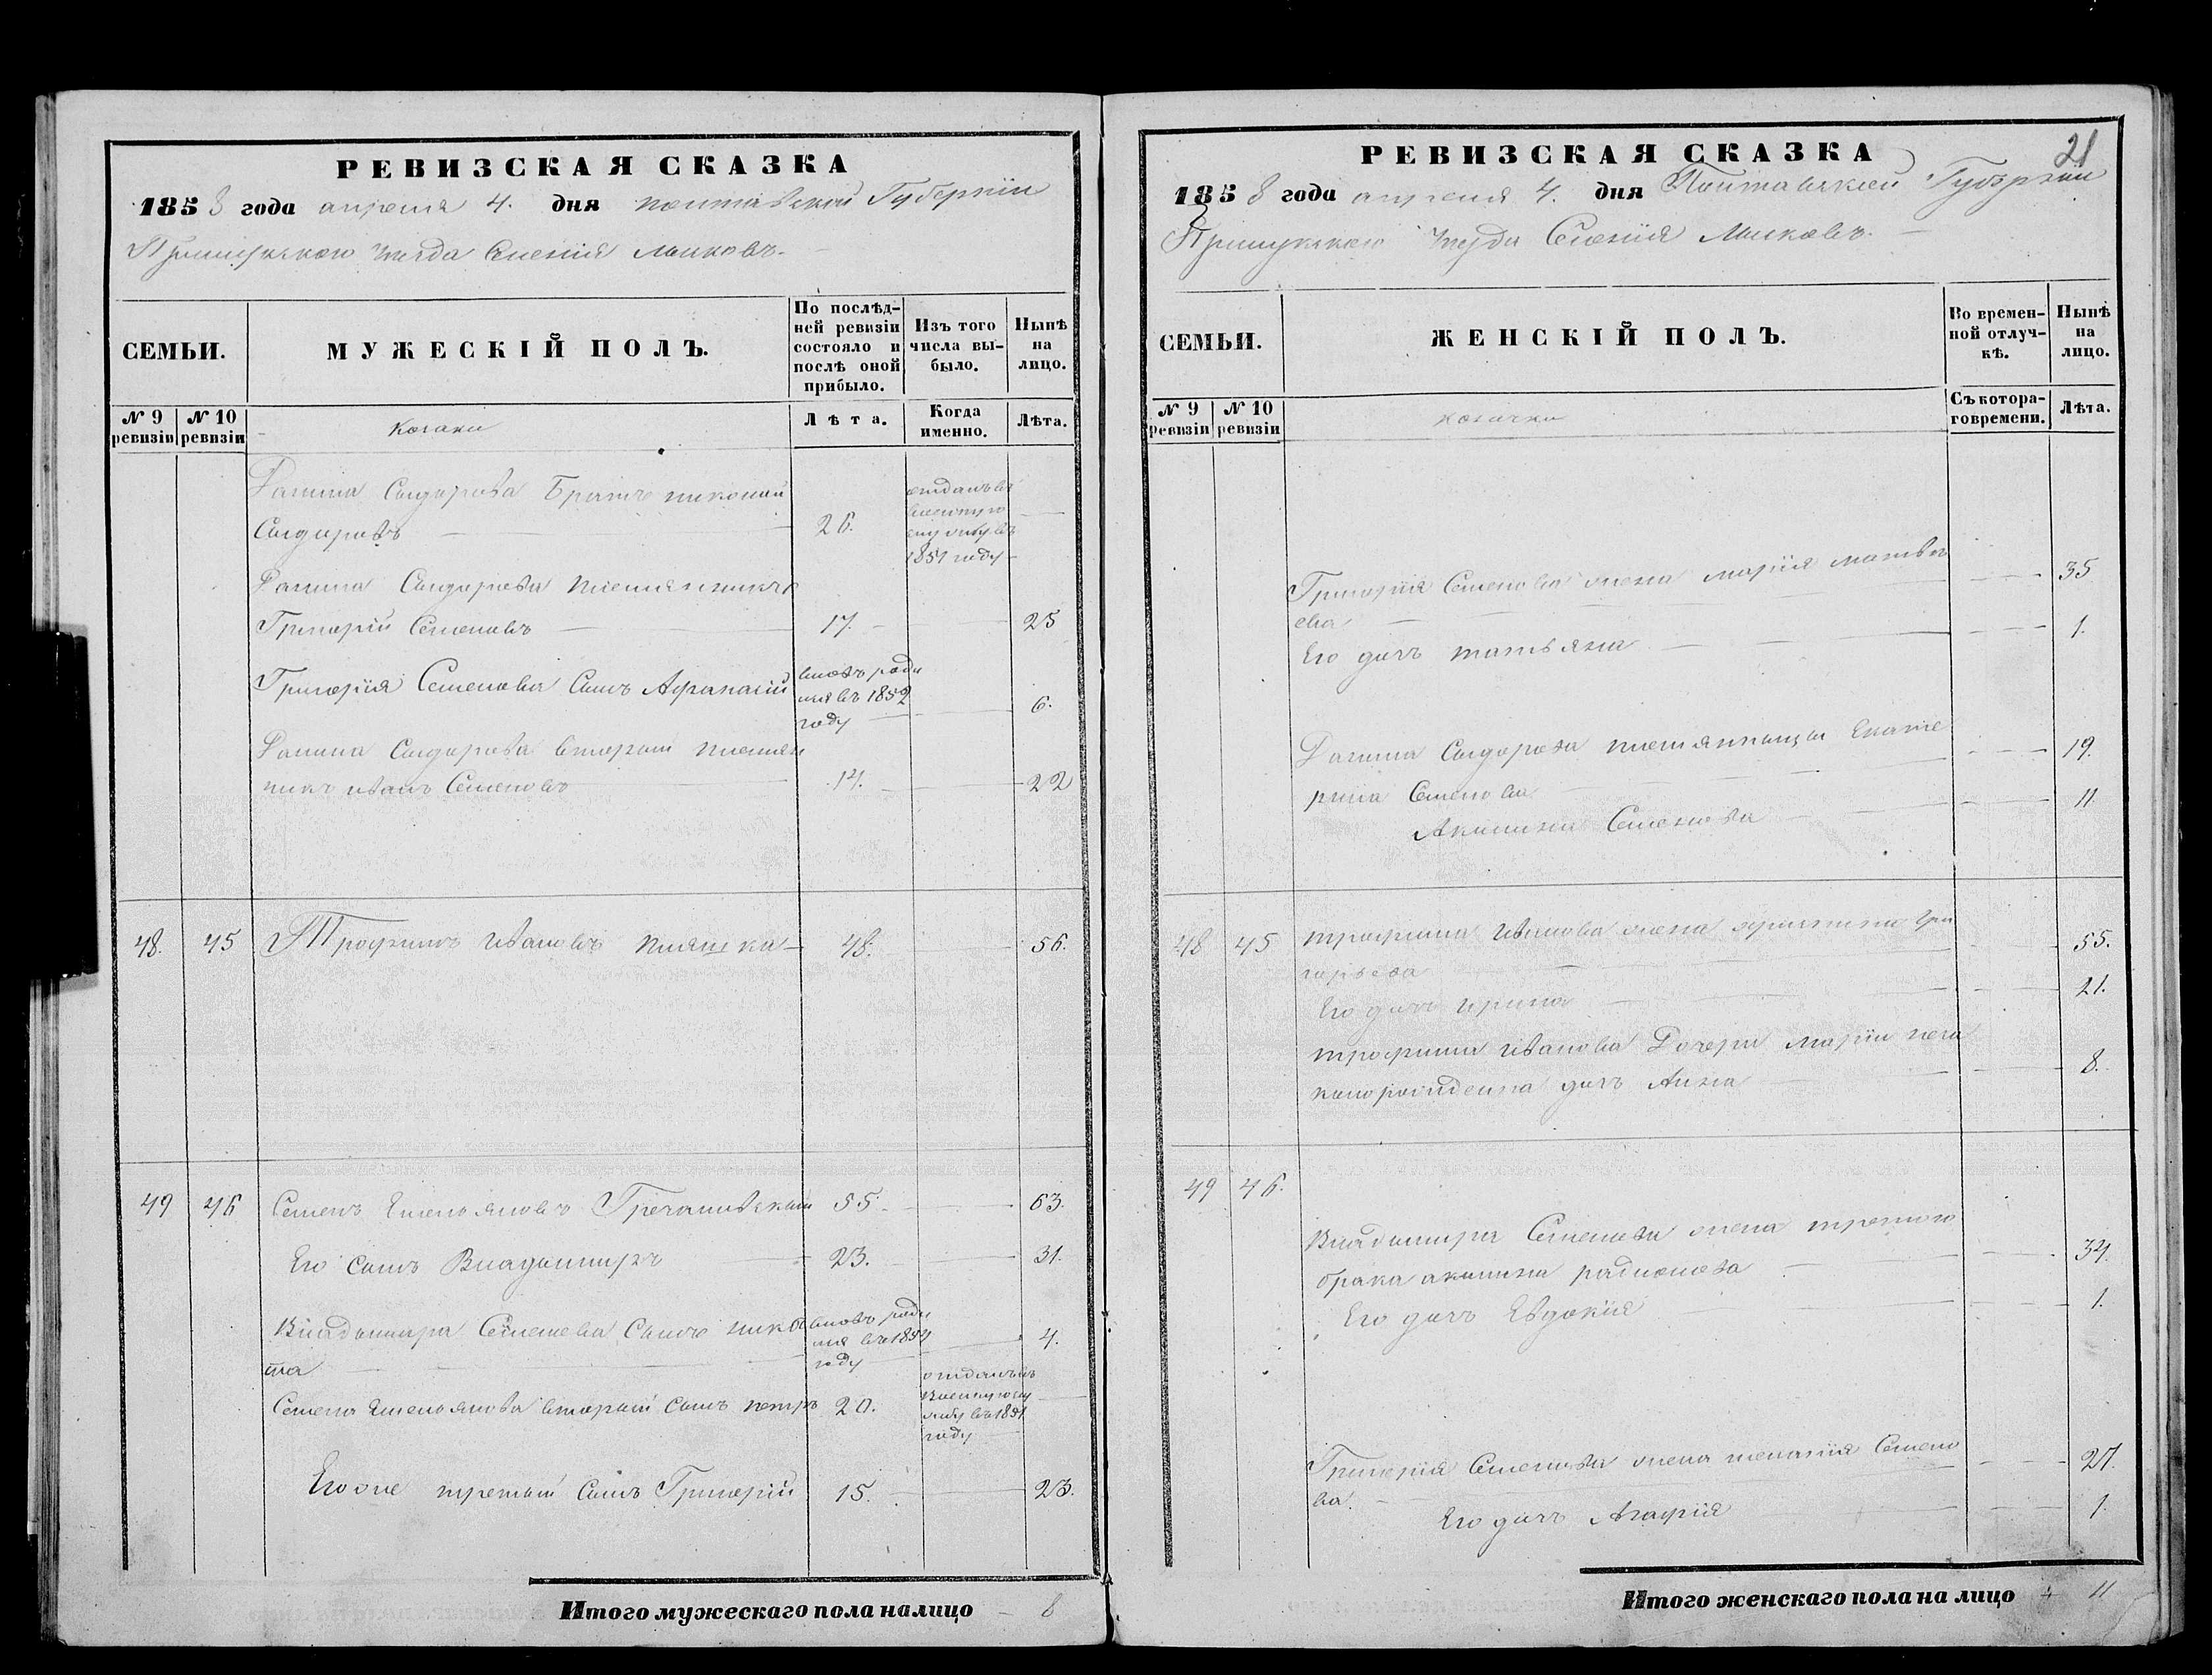 РЕВИЗСКАЯ СКАЗКА
1858 года апреля 4. дня полтавской Губернiи
Прилуцкого уезда Селенiя Малковъ.
СЕМЬИ.
МУЖЕСКІЙ ПОЛЪ.
По послѣд-
ней ревизіи
состояло и
послѣ оной
прибыло.
Изъ того
числа вы-
было.
Нынѣ
на
лицо.
№ 9
ревизіи
№ 10
ревизіи
козаки
Лѣта.
Когда
именно.
Лѣта.
Данила Сидорова Братъ николай
Сидоровъ 26.
отданъ въ
военную
службу въ
1851 году
Данила Сидорова племянникъ
Григорій Семеновъ 17. 25
Григорія Семенова Сынъ Афанасій
вновь роди
лся въ 1852
году
6.
Данила Сидорова вторый племян
никъ иванъ Семеновъ 14. 22
48. 45 Трофимъ ивановъ пляшка 48. 56.
49 46 Семенъ Емельяновъ Гречановскій 55. 63.
Его сынъ Владимиръ 23. 31.
Владимира Семенова Сынъ никі
та
вновь роди
лся въ 1854
году
4.
Семена Емельянова вторый сынъ петръ 20.
отданъ въ
Военную слу
жбу въ 1851
году
Его же третий Сынъ Григорій 15. 23.
Итого мужескаго пола налицо 8
21
РЕВИЗСКАЯ СКАЗКА
1858 года апреля 4. дня Полтавской Губернiи
Прилуцкого уезда Селенiя Малковъ.
СЕМЬИ.
ЖЕНСКІЙ ПОЛЪ.
Во времен-
ной отлуч-
кѣ.
Нынѣ
на
лицо.
№ 9
ревизіи
№ 10
ревизіи
козачки
Съ котора-
го времени.
Лѣта.
Григорія Семенова жена марія матвѣ
ева 35
Его дочь татьяна 1.
Данила Сидорова племянницы Екате
рина Семенова 19.
Акилина Семенова 11
48 45 трофима иванова жена Гри
горьева 55.
Его дочь ирина 21.
трофима иванова Дочери маріи неза
конорожденна дочь Анна 8.
49 46.
Владимира Семенова жена третого
брака акилина радионова 34.
Его дочь Евдокія 1.
Григорія Семенова жена меланія Семено
ва. 27.
Его дочь Агафія 1.
Итого женскаго пола на лицо 11